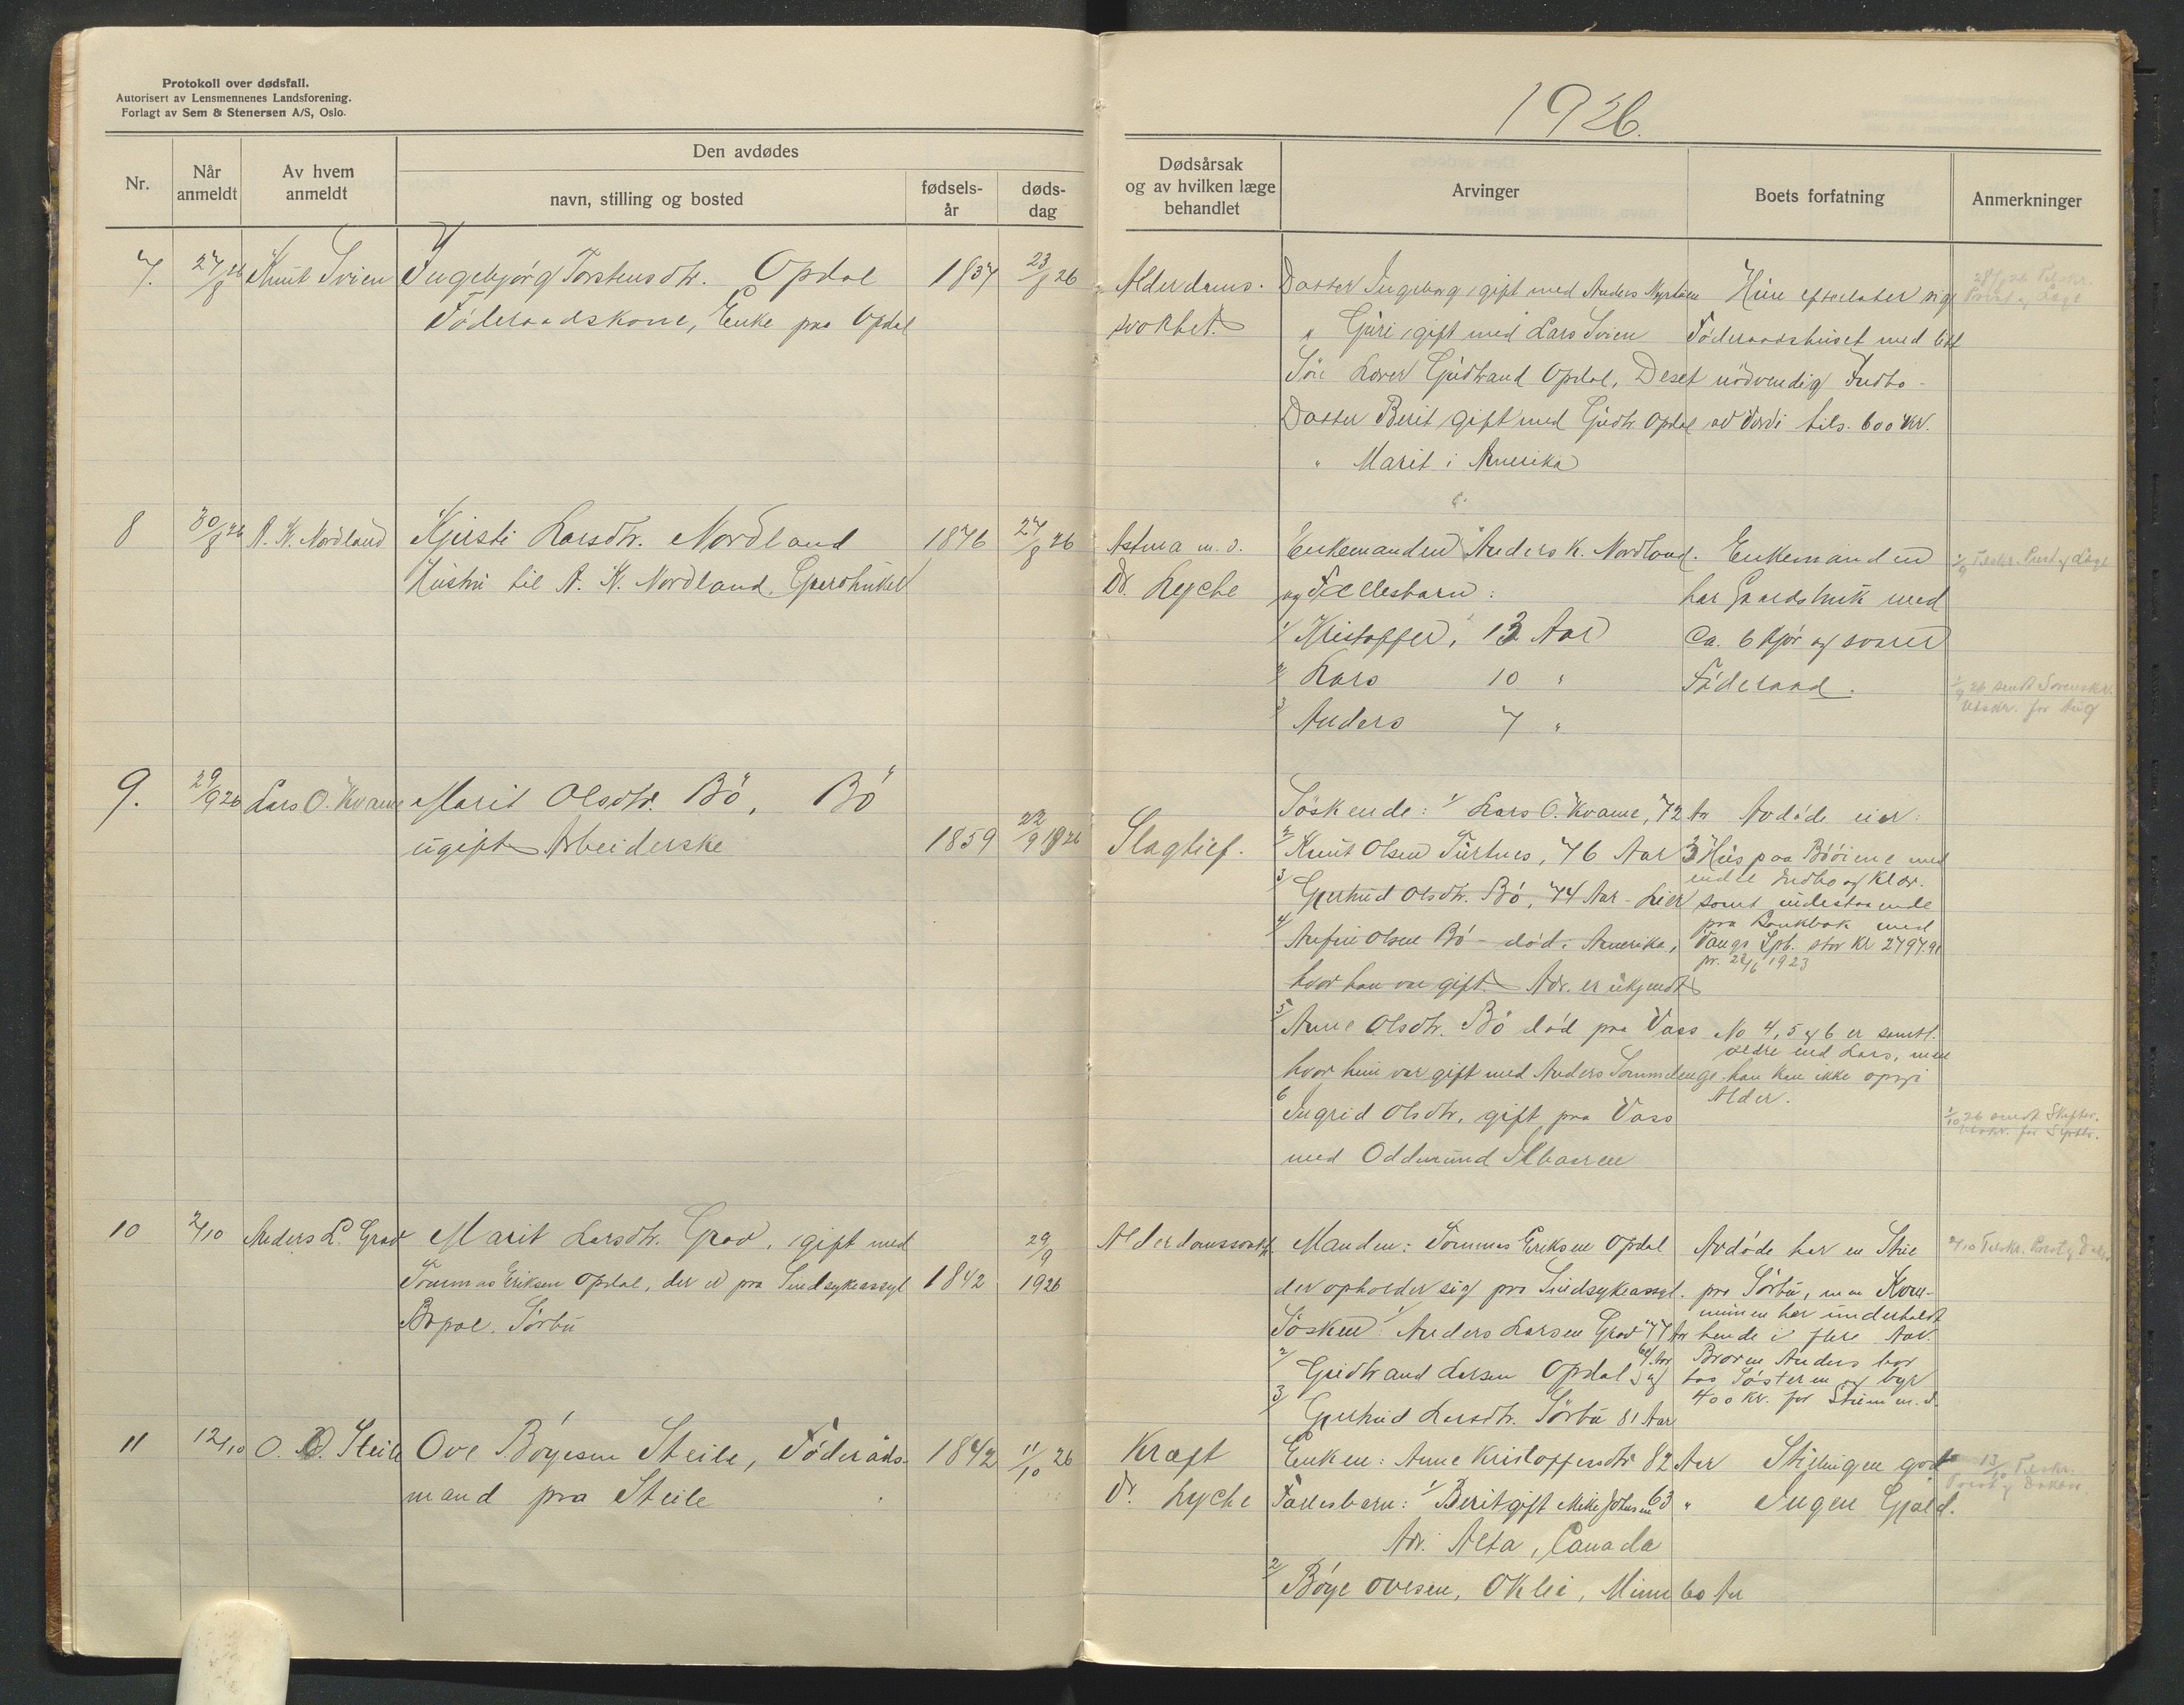 Protokoll over dødsfall.
Autorisert av Lensmennenes Landsforening.
Forlagt av Sem & Stenersen A/S, Oslo.
1926.
Nr.
Når anmeldt
Av hvem anmeldt
Den avdødes
navn, stilling og bosted
fødsels-år
døds-dag
Dødsårsak og av hvilken læge behandlet
Arvinger
Boets forfatning
Anmerkninger
7. 27/8 26 Knut Svien Ingebjørg Torstensdtr. Opdal 1837 23/8 26
Føderaadskone, Enke paa Opdal
Alderdoms-
svakhet.
Datter Ingeborg, gift med Anders
" Guri, gift med Lars Svien
Søn Laver Gudbrand Opdal,
Datter Berit, gift med Gudbr. Opdal
" Marit i Amerika
Hun efterlater sig
Føderaadshuset med litt
nødvendig Indbo
av Verdi tils. 600 kr.
8 30/8 26 A. K. Nordland Kjersti Larsdtr. Nordland 1876 27/8 26
Hustru til A. K. Nordland, Gaardbruker
Astma m. v.
Dr. Lyche
Enkemanden Anders K. Nordland.
og Fællesbarn:
1/ Kristoffer, 13 Aar
2/ Lars 10 "
3/ Anders 7 "
Enkemanden
har Gaardsbruk med
Ca. 6 Kjør og svarer
Føderaad.
1/9 26 sendt Sorenskr.
Utskr. for Aug
9. 29/9 26 Lars O. Kvame Marit Olsdtr. Bø, Bø
ugift Arbeiderske 1859 22/9 1926
Slagtilf.
Søskende: 1/ Lars O. Kvame, 72 Ar
2/ Knut Olsen Turtnes, 76 Aar
3/ Gjertrud Olsdtr. Bø, 74 Aar - Lier
4/ Anfin Olsen Bø - død i Amerika,
hvor han var gift. Adr. er ukjendt
5/ Anne Olsdtr. Bø død paa Voss
hvor hun var gift med Anders
6 Ingrid Olsdtr, gift paa Voss
med Oddmund
Avdøde eier:
3 Hus paa Bøøine med
endel Indbo og Klær.
samt indestaaende
paa Bankbok med
Vangs Spb. stor kr 2797.91
pr. 22/6 1923
No 4, 5 og 6 er samtl.
ældre end Lars, men
han kan ikke opgi
Alder.
1/10 26 sendt Skifter.
Utskr. for Septbr.
10 2/10 Anders L. Grøv Marit Larsdtr. Grøv, gift med
Tommas Eriksen Opdal, der er paa Sindsykeassyl 1842 29/9 1926
Bopæl. Sørbu
Alderdomssvakh.
Manden: Tommas Eriksen Opdal
der opholder sig paa Sindsykeassyl.
Søsken: 1/ Anders Larsen Grøv 77 Ar
2/ Gudbrand Larsen Opdal og
3/ Gjertrud Larsdtr. Sørbu 81 Aar
Avdøde har en Stue
paa Sørbu, men Kom-
munen har underholdt
hende i flere Aar.
Broren Anders bor
hos Søsteren og byr
400 kr. for Stuen m. v.
11 12/10 O. O. Steile Ove Bøyesen Steile, Føderåds- 1842 11/10 26
mand paa Steile
Kræft
Dr. Lyche
Enken: Anne Kristoffersdtr 82 Aar
Fællesbarn: 1/ Berit gift Mekk Johnsen 63 "
Adr. Alta, Canada
2/ Bøye Ovesen, Oklee, Minn 60 Ar
Stillingen god
Ingen Gjæld.